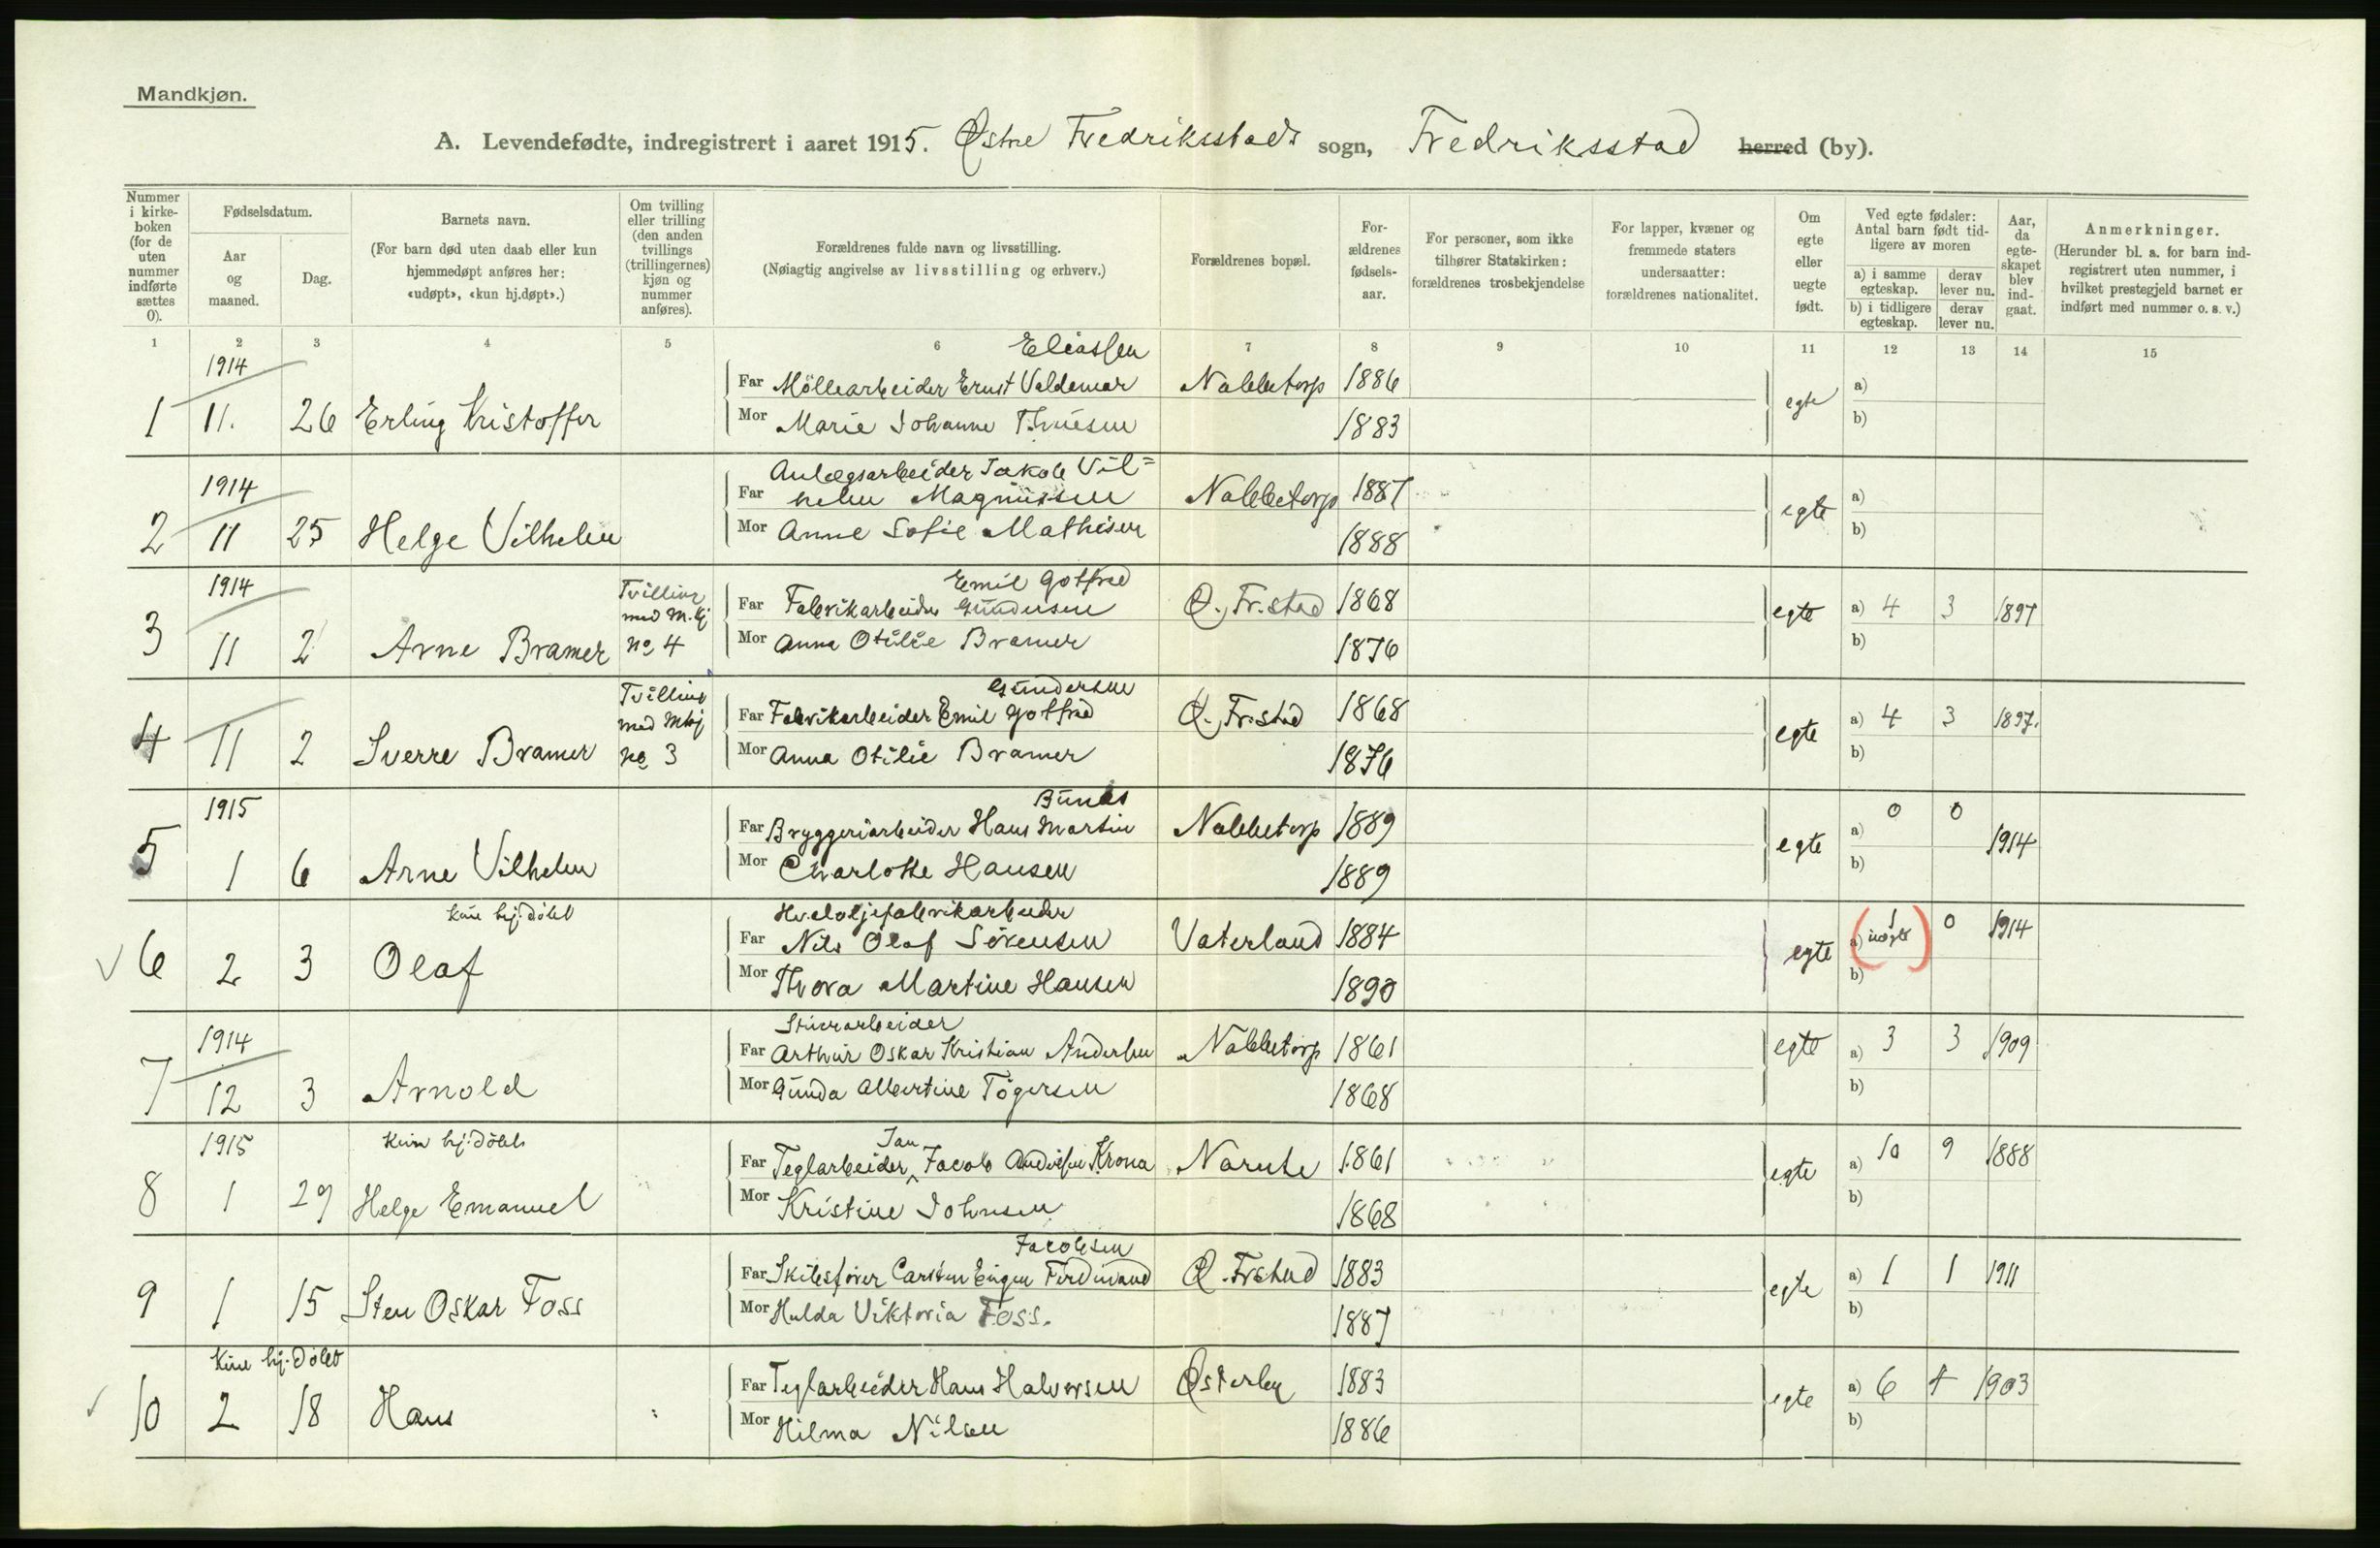 Mandkjøn.
A. Levendefødte, indregistrert i aaret 1915. Østre Fredriksstads sogn, Fredriksstad herred (by).
Nummer i kirke-boken (for de uten nummer indførte sættes 0).
Fødselsdatum.
Aar og maaned.
Dag.
Barnets navn.
(For barn død uten daab eller kun hjemmedøpt anføres her: «udøpt», «kun hj.døpt».)
Om tvilling eller trilling (den anden tvillings (trillingernes) kjøn og nummer anføres).
Forældrenes fulde navn og livsstilling.
(Nøiagtig angivelse av livsstilling og erhverv.)
Forældrenes bopæl.
For-ældrenes fødsels-aar.
For personer, som ikke tilhører Statskirken: forældrenes trosbekjendelse
For lapper, kvæner og fremmede staters undersaatter: forældrenes nationalitet.
Om egte eller uegte født.
Ved egte fødsler: Antal barn født tid-ligere av moren
a) i samme egteskap.
derav lever nu.
b) i tidligere egteskap.
derav lever nu.
Aar, da egte-skapet blev ind-gaat.
Anmerkninger.
(Herunder bl. a. for barn ind-registrert uten nummer, i hvilket prestegjeld barnet er indført med nummer o. s. v.)
1 2 3 4 5 6 7 8 9 10 11 12 13 14 15
1914 Eliassen
Far Möllearbeider Ernst Valdemar Nabbetorp 1886 egte a)
1 11. 26 Erling Kristoffer Mor Marie Johanne Thuesen 1883 b)
1914 Anlægsarbeider Jakob Vil=
Far helm Magnussen Nabbetorp 1887 egte a)
2 11 25 Helge Vilhelm Mor Anne Sofie Mathisen 1888 b)
1914 Tvilling med M.kj Emil Gotfred
Far Fabrikarbeider Gundersen Ø. Fr.stad 1868 egte a) 4 3 1897
3 11 2 Arne Bramer no 4 Mor Anna Otilie Bramer 1876 b)
Tvilling med Mkj Gundersen
Far Fabrikarbeider Emil Gotfred Ø. Fr.stad 1868 egte a) 4 3 1897.
4 11 2 Sverre Bramer no 3 Mor Anna Otilie Bramer 1876 b)
1915
Far Bryggeriarbeider Hans Martin Nabbetorp 1889 egte a) 0 0 1914
5 1 6 Arne Vilhelm Mor Charlotte Hansen 1889 b)
kun hj.døbt Hvaloljefabrikarbeider
Far Nils Olaf Sörensen Vaterland 1884 egte a) 1 uegte 0 1914
6 2 3 Olaf Mor Thora Martine Hansen 1890 b)
1914 Stuerarbeider
Far Arthur Oskar Kristian Andersen Nabbetorp 1861 egte a) 3 3 1909
7 12 3 Arnold Mor Gunda Albertine Tögersen 1868 b)
1915 kun hj.döbt Jan
Far Teglarbeider Jacob Andersen Krona Narute 1861 egte a) 10 9 1888
8 1 29 Helge Emanuel Mor Kristine Johnsen 1868 b)
Jacobsen
Far Skibsfører Carsten Eugen Ferdinand Ø. Frstad 1883 egte a) 1 1 1911
9 1 15 Sten Oskar Foss Mor Hulda Viktoria Foss. 1887 b)
kun hj.døbt
Far Teglarbeider Hans Halvorsen Østerby 1883 egte a) 6 1903
10 2 18 Hans Mor Hilma Nilsen 1886 b)